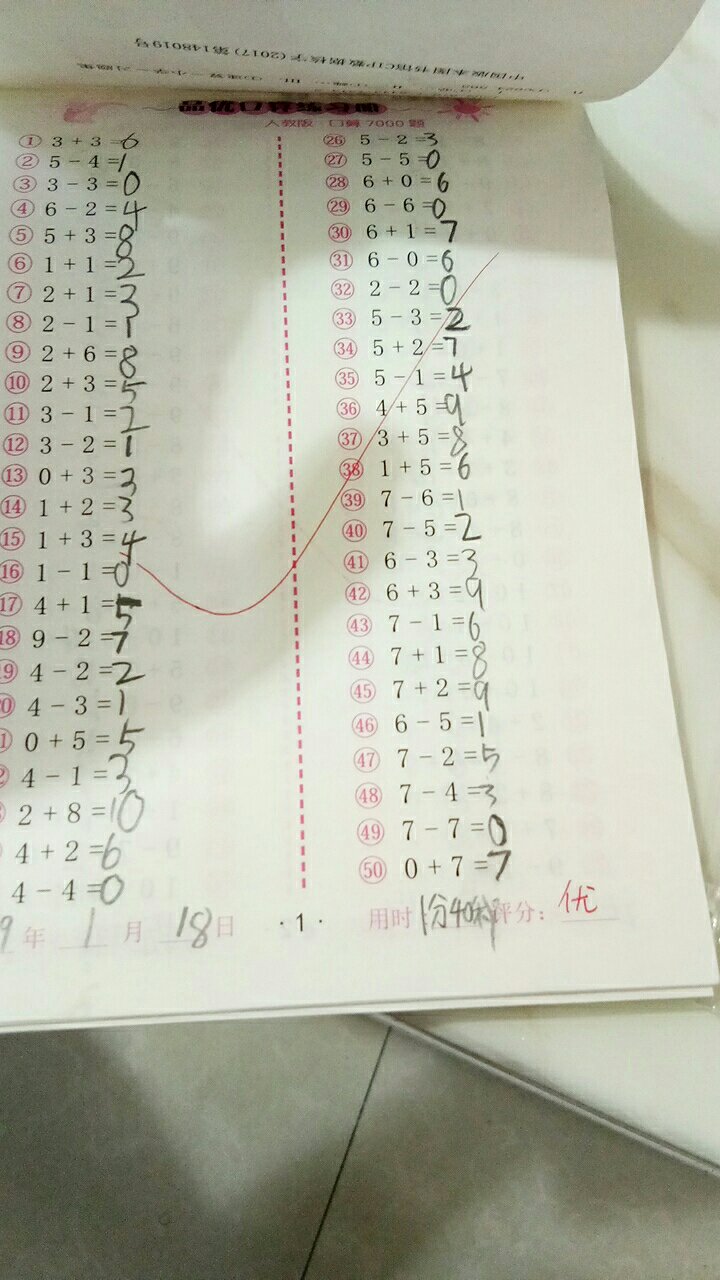 中国版本图书馆CIP数据核字(2017)第148019号
品优口算练习册
人教版·口算7000题
① 3 + 3 = 6
② 5 − 4 = 1
③ 3 − 3 = 0
④ 6 − 2 = 4
⑤ 5 + 3 = 8
⑥ 1 + 1 = 2
⑦ 2 + 1 = 3
⑧ 2 − 1 = 1
⑨ 2 + 6 = 8
⑩ 2 + 3 = 5
⑪ 3 − 1 = 2
⑫ 3 − 2 = 1
⑬ 0 + 3 = 3
⑭ 1 + 2 = 3
⑮ 1 + 3 = 4
⑯ 1 − 1 = 0
⑰ 4 + 1 = 5
⑱ 9 − 2 = 7
9 4 − 2 = 2
0 4 − 3 = 1
1 0 + 5 = 5
2 4 − 1 = 3
2 + 8 = 10
4 + 2 = 6
4 − 4 = 0
㉖ 5 − 2 = 3
㉗ 5 − 5 = 0
㉘ 6 + 0 = 6
㉙ 6 − 6 = 0
㉚ 6 + 1 = 7
㉛ 6 − 0 = 6
㉜ 2 − 2 = 0
㉝ 5 − 3 = 2
㉞ 5 + 2 = 7
㉟ 5 − 1 = 4
㊱ 4 + 5 = 9
㊲ 3 + 5 = 8
㊳ 1 + 5 = 6
㊴ 7 − 6 = 1
㊵ 7 − 5 = 2
㊶ 6 − 3 = 3
㊷ 6 + 3 = 9
㊸ 7 − 1 = 6
㊹ 7 + 1 = 8
㊺ 7 + 2 = 9
㊻ 6 − 5 = 1
㊼ 7 − 2 = 5
㊽ 7 − 4 = 3
㊾ 7 − 7 = 0
㊿ 0 + 7 = 7
9 年 1 月 18 日 ·1· 用时 1分40秒 评分：优